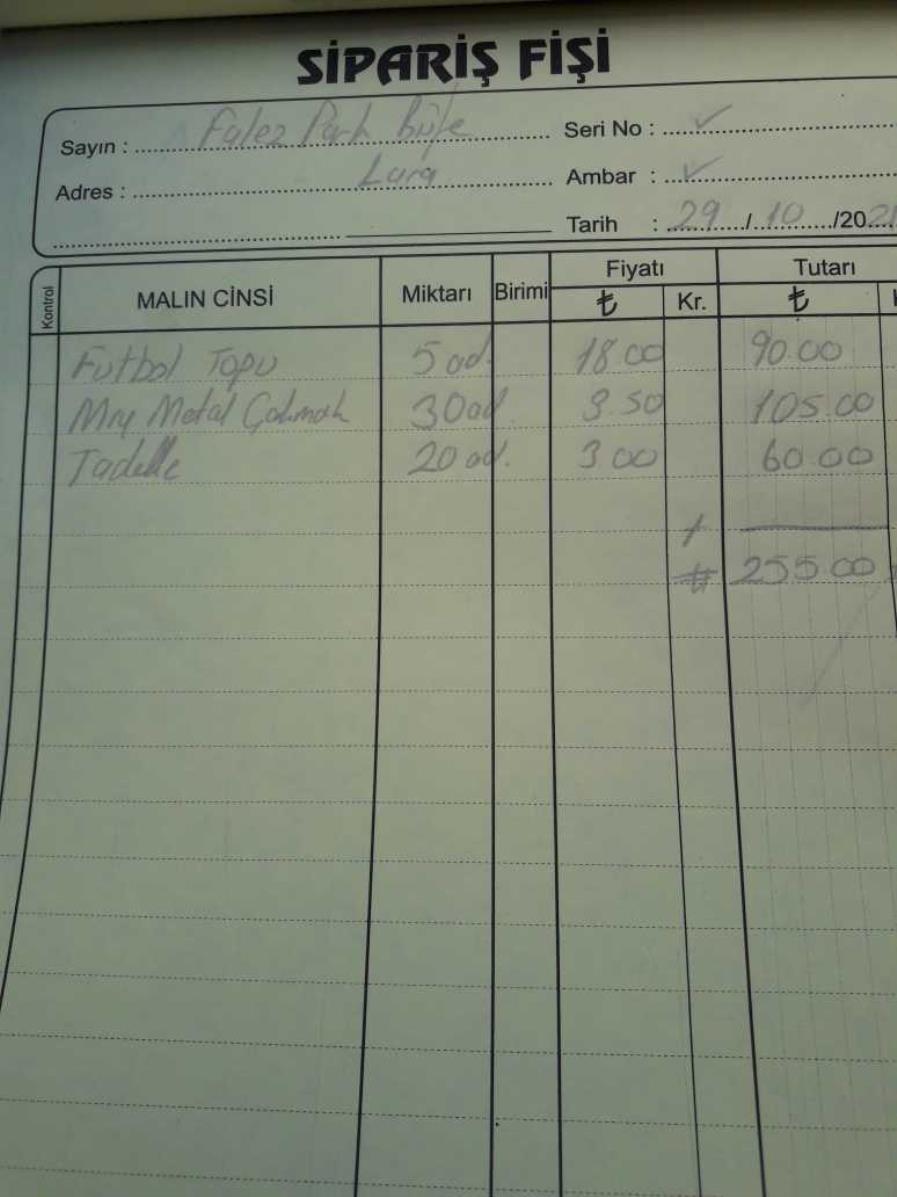 SİPARİŞ FİŞİ
Sayın : Falez Park Büfe Seri No : ✓
Adres : Lara Ambar : ✓
Tarih : 29/10/2021
Kontrol MALIN CİNSİ Miktarı Birimi Fiyatı ₺ Kr. Tutarı ₺
Futbol Topu 5 ad. 18.00 90.00
Metal Çakmak 30 ad. 3.50 105.00
Tadelle 20 ad. 3.00 60.00
255.00